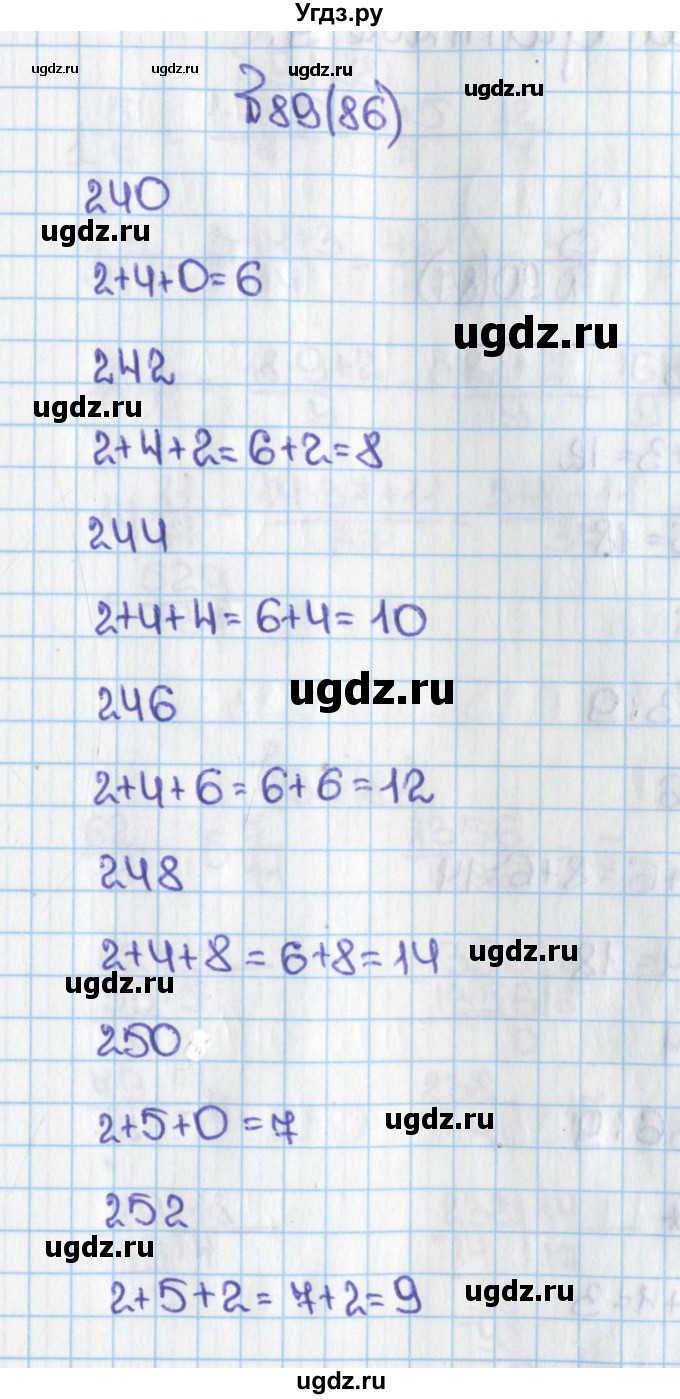 Угдз.ру
ugdz.ru ugdz.ru ugdz.ru ugdz.ru
89(86)
240
ugdz.ru
2+4+0=6
ugdz.ru
242
ugdz.ru
2+4+2=6+2=8
244
2+4+4=6+4=10
ugdz.ru
246
2+4+6=6+6=12
248
2+4+8=6+8=14 ugdz.ru
ugdz.ru
250
2+5+0=7 ugdz.ru
252
ugdz.ru
2+5+2=7+2=9 ugdz.ru
ugdz.ru